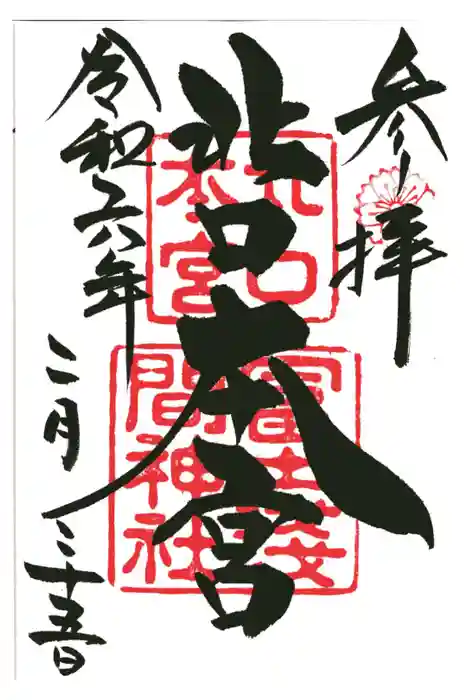 参拝
北口本宮
令和六年
二月
二十五日
北口
本宮
冨士浅
間神社